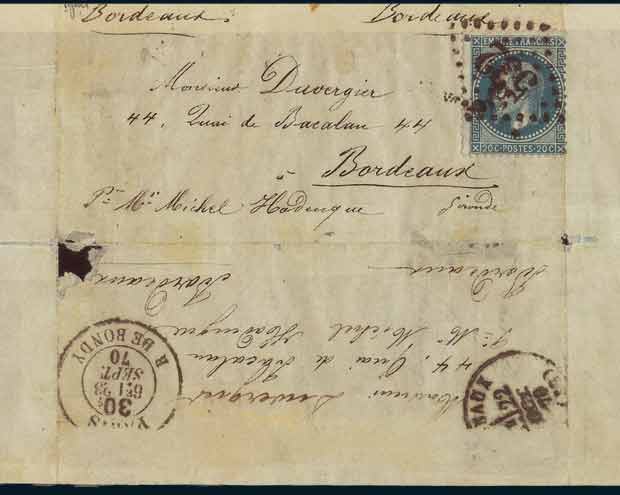 Bordeaux. Bordeaux
Monsieur Duvergier
44, Quai de Bacalan 44
à Bordeaux
Pr. Mr. Michel Hadengue Gironde
EMPIRE FRANÇAIS
20 C - POSTES - 20 C
Bordeaux Bordeaux
Pr. Mr. Michel Hadengue
44, Quai de Bacalan
Monsieur Duvergier
PARIS R. DE BONDY
6E 23
SEPT.
70
30
EAUX
70